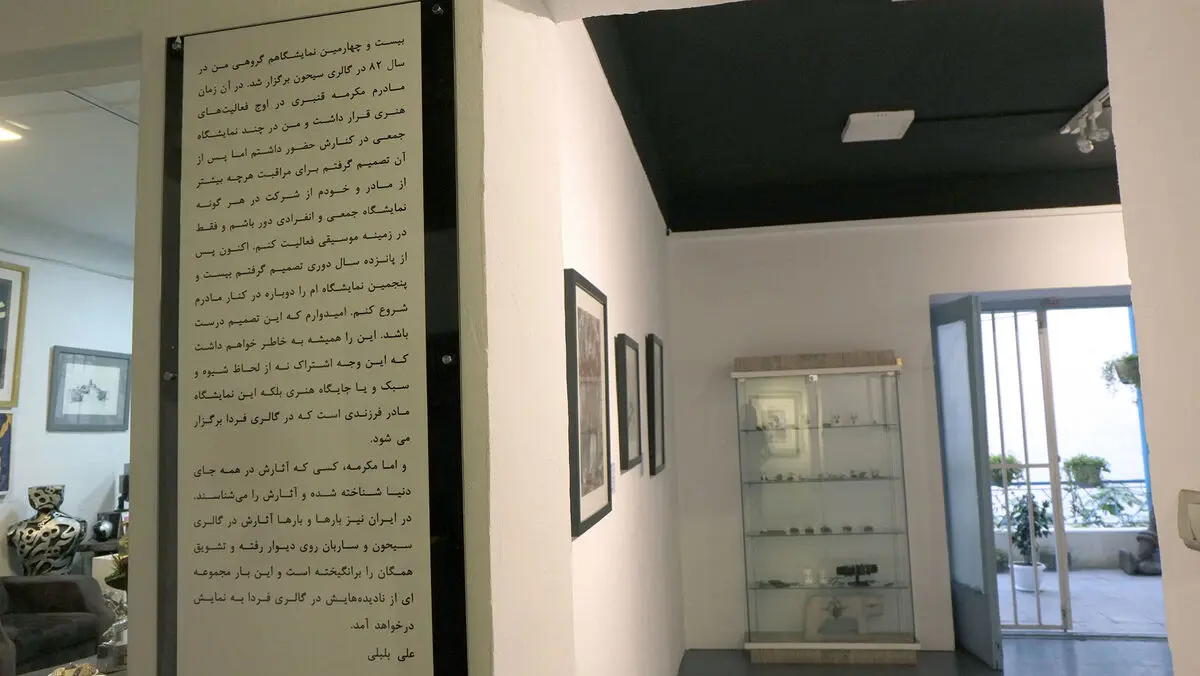 بیست و چهارمین نمایشگاهم گروهی من در
سال ۸۲ در گالری سیحون برگزار شد. در آن زمان
مادرم مکرمه قنبری در اوج فعالیت‌های
هنری قرار داشت و من در چند نمایشگاه
جمعی در کنارش حضور داشتم اما پس از
آن تصمیم گرفتم برای مراقبت هرچه بیشتر
از مادر و خودم از شرکت در هر گونه
نمایشگاه جمعی و انفرادی دور باشم و فقط
در زمینه موسیقی فعالیت کنم. اکنون پس
از پانزده سال دوری تصمیم گرفتم بیست و
پنجمین نمایشگاه ام را دوباره در کنار مادرم
شروع کنم. امیدوارم که این تصمیم درست
باشد. این را همیشه به خاطر خواهم داشت
که این وجه اشتراک نه از لحاظ شیوه و
سبک و یا جایگاه هنری بلکه این نمایشگاه
مادر فرزندی است که در گالری فردا برگزار
می شود.
و اما مکرمه، کسی که آثارش در همه جای
دنیا شناخته شده و آثارش را می‌شناسند.
در ایران نیز بارها و بارها آثارش در گالری
سیحون و ساربان روی دیوار رفته و تشویق
همگان را برانگیخته است و این بار مجموعه
ای از نادیده‌هایش در گالری فردا به نمایش
درخواهد آمد.
علی بلبلی